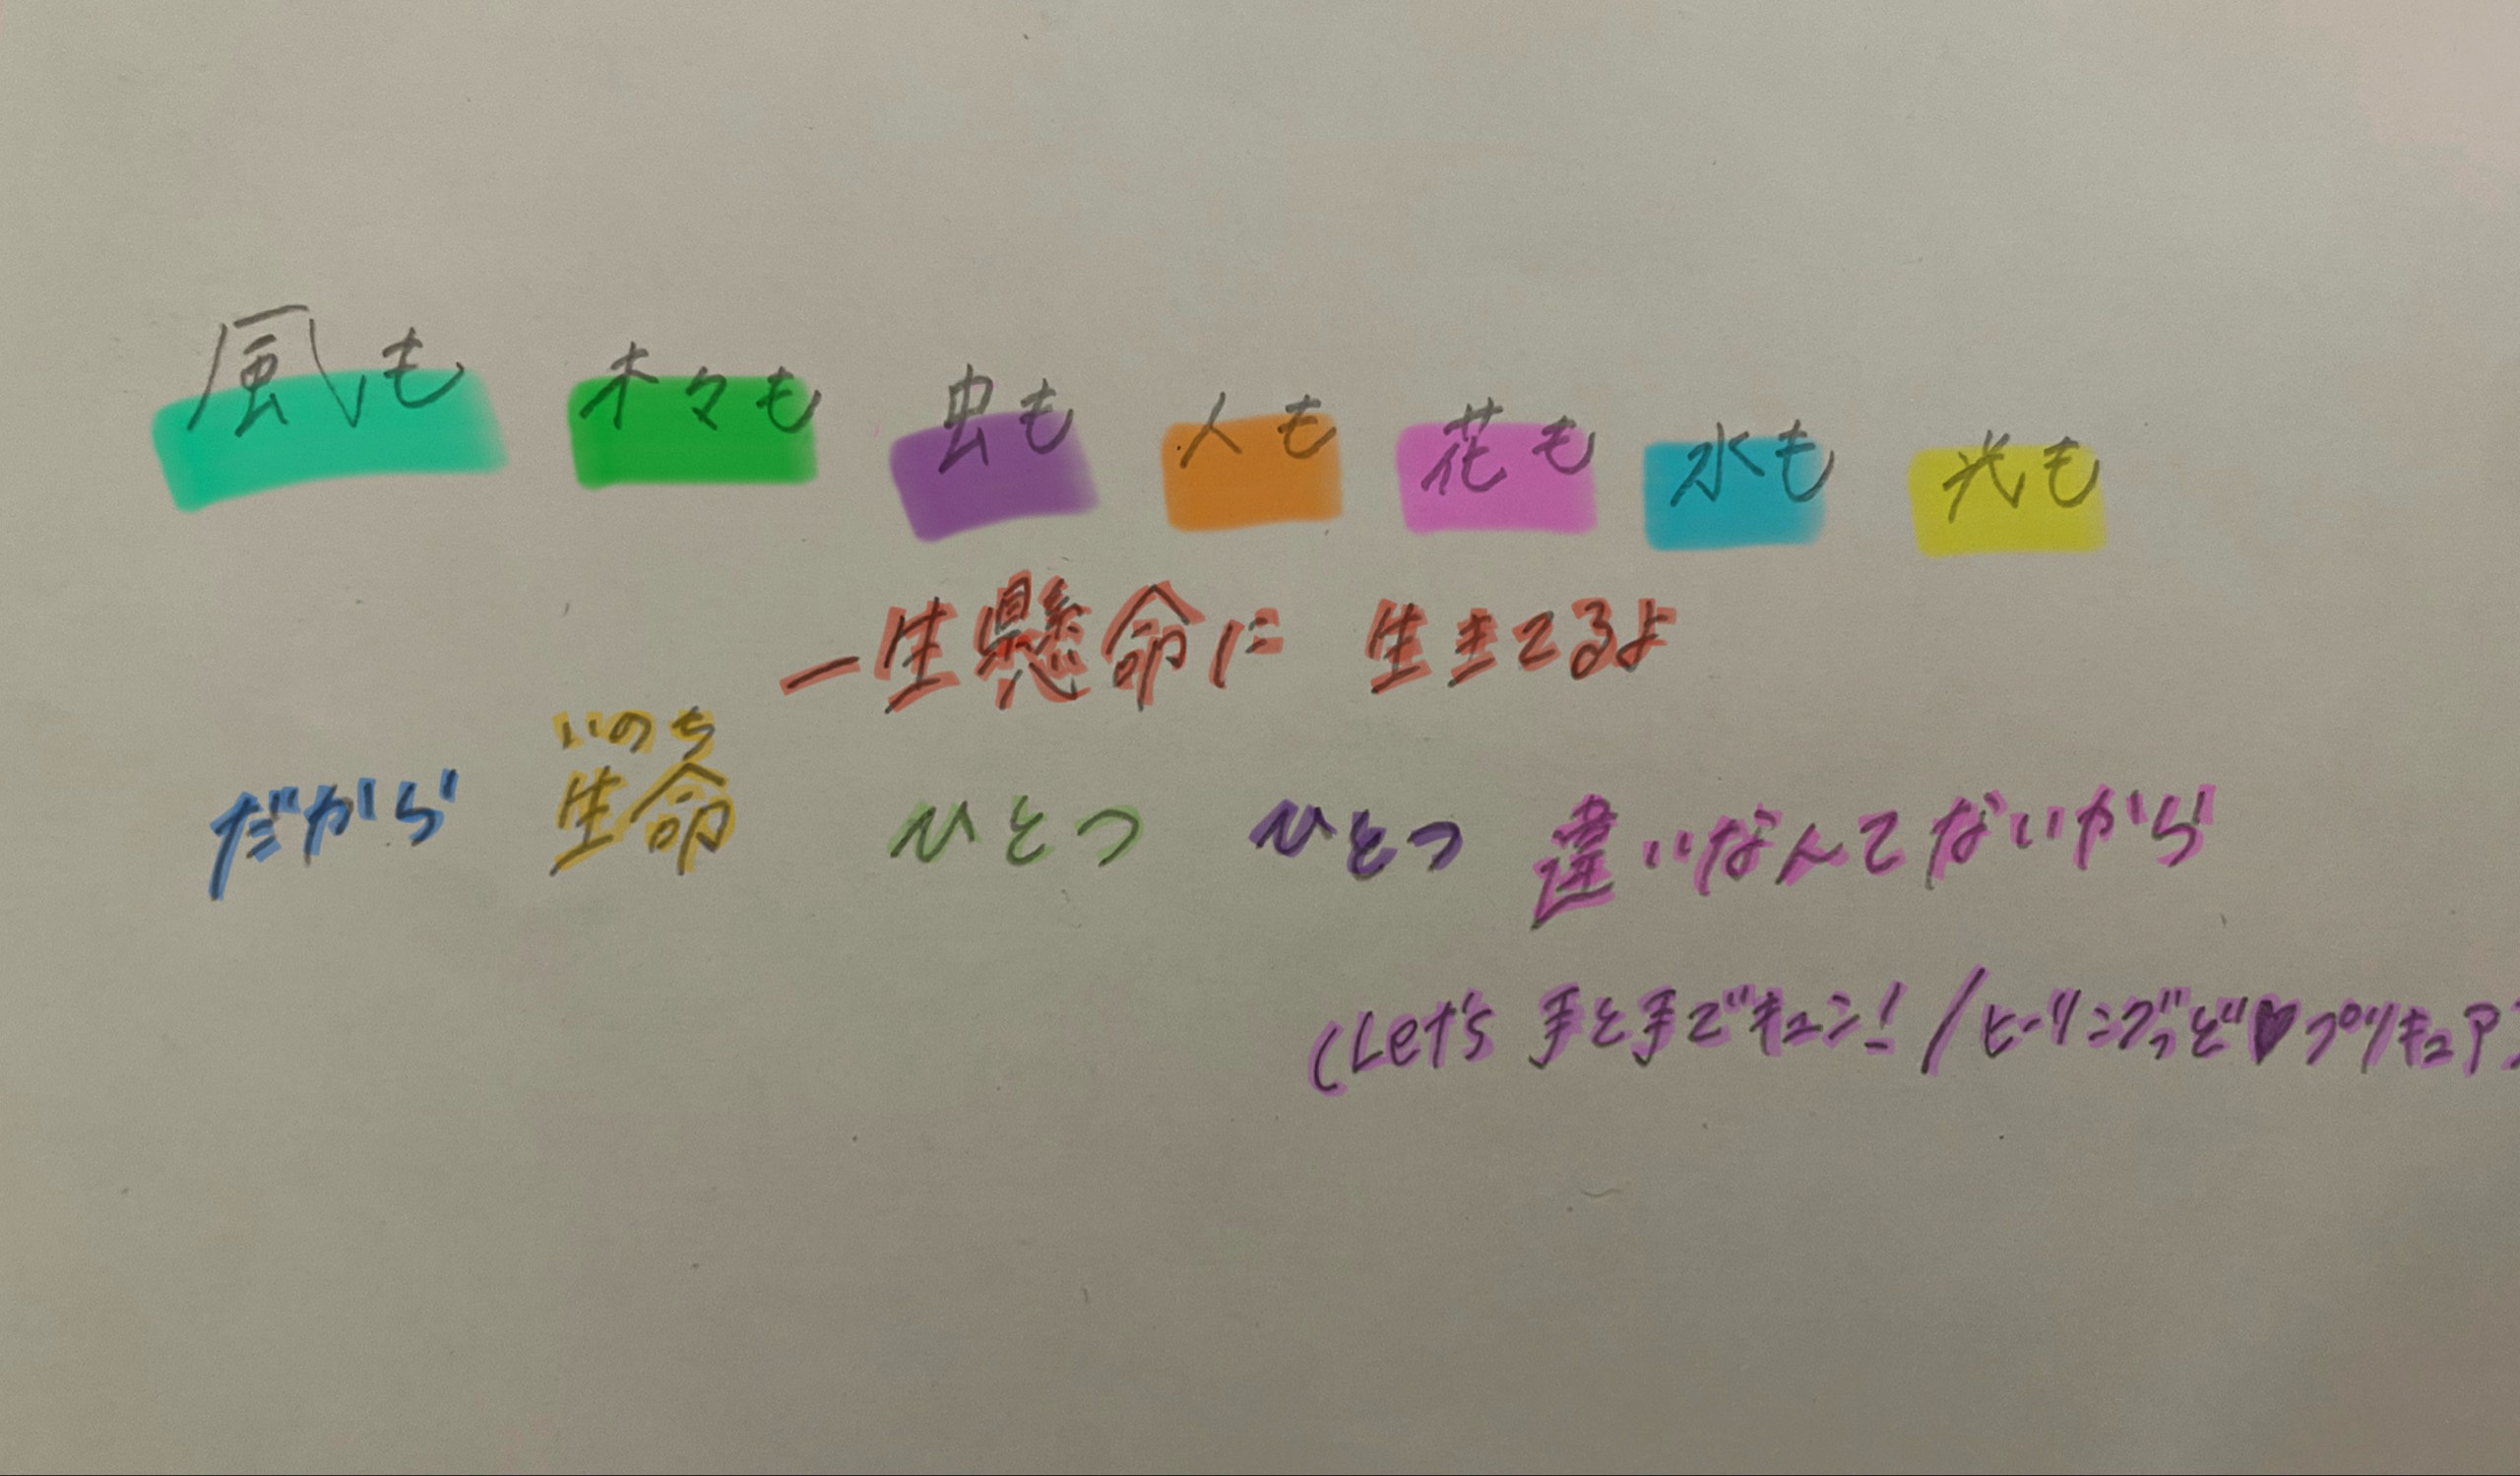 風も 木々も 虫も 人も 花も 水も 光も
一生懸命に 生きてるよ
いのち
だから 生命 ひとつ ひとつ 違いなんてないから
(Let's 手と手でキュン! / ヒーリングっど♥プリキュア)